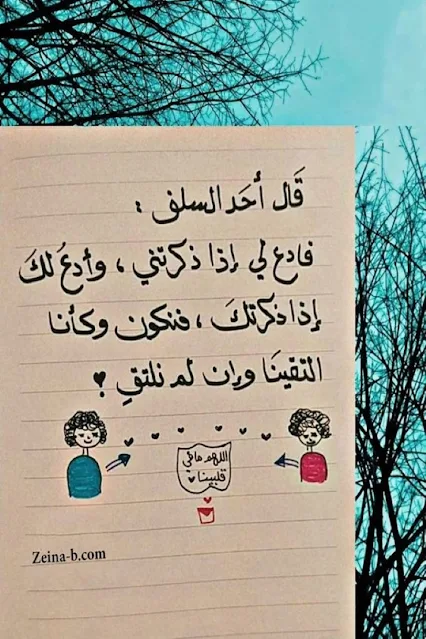 قَال أَحَد السلف :
فادع لي إذا ذكرتني ، وأدعُ لكَ
إذا ذكرتكَ ، فنكون وكأننا
التقينَا وإن لم نلتقِ !
اللهم ما في
قلبينا
Zeina-b.com